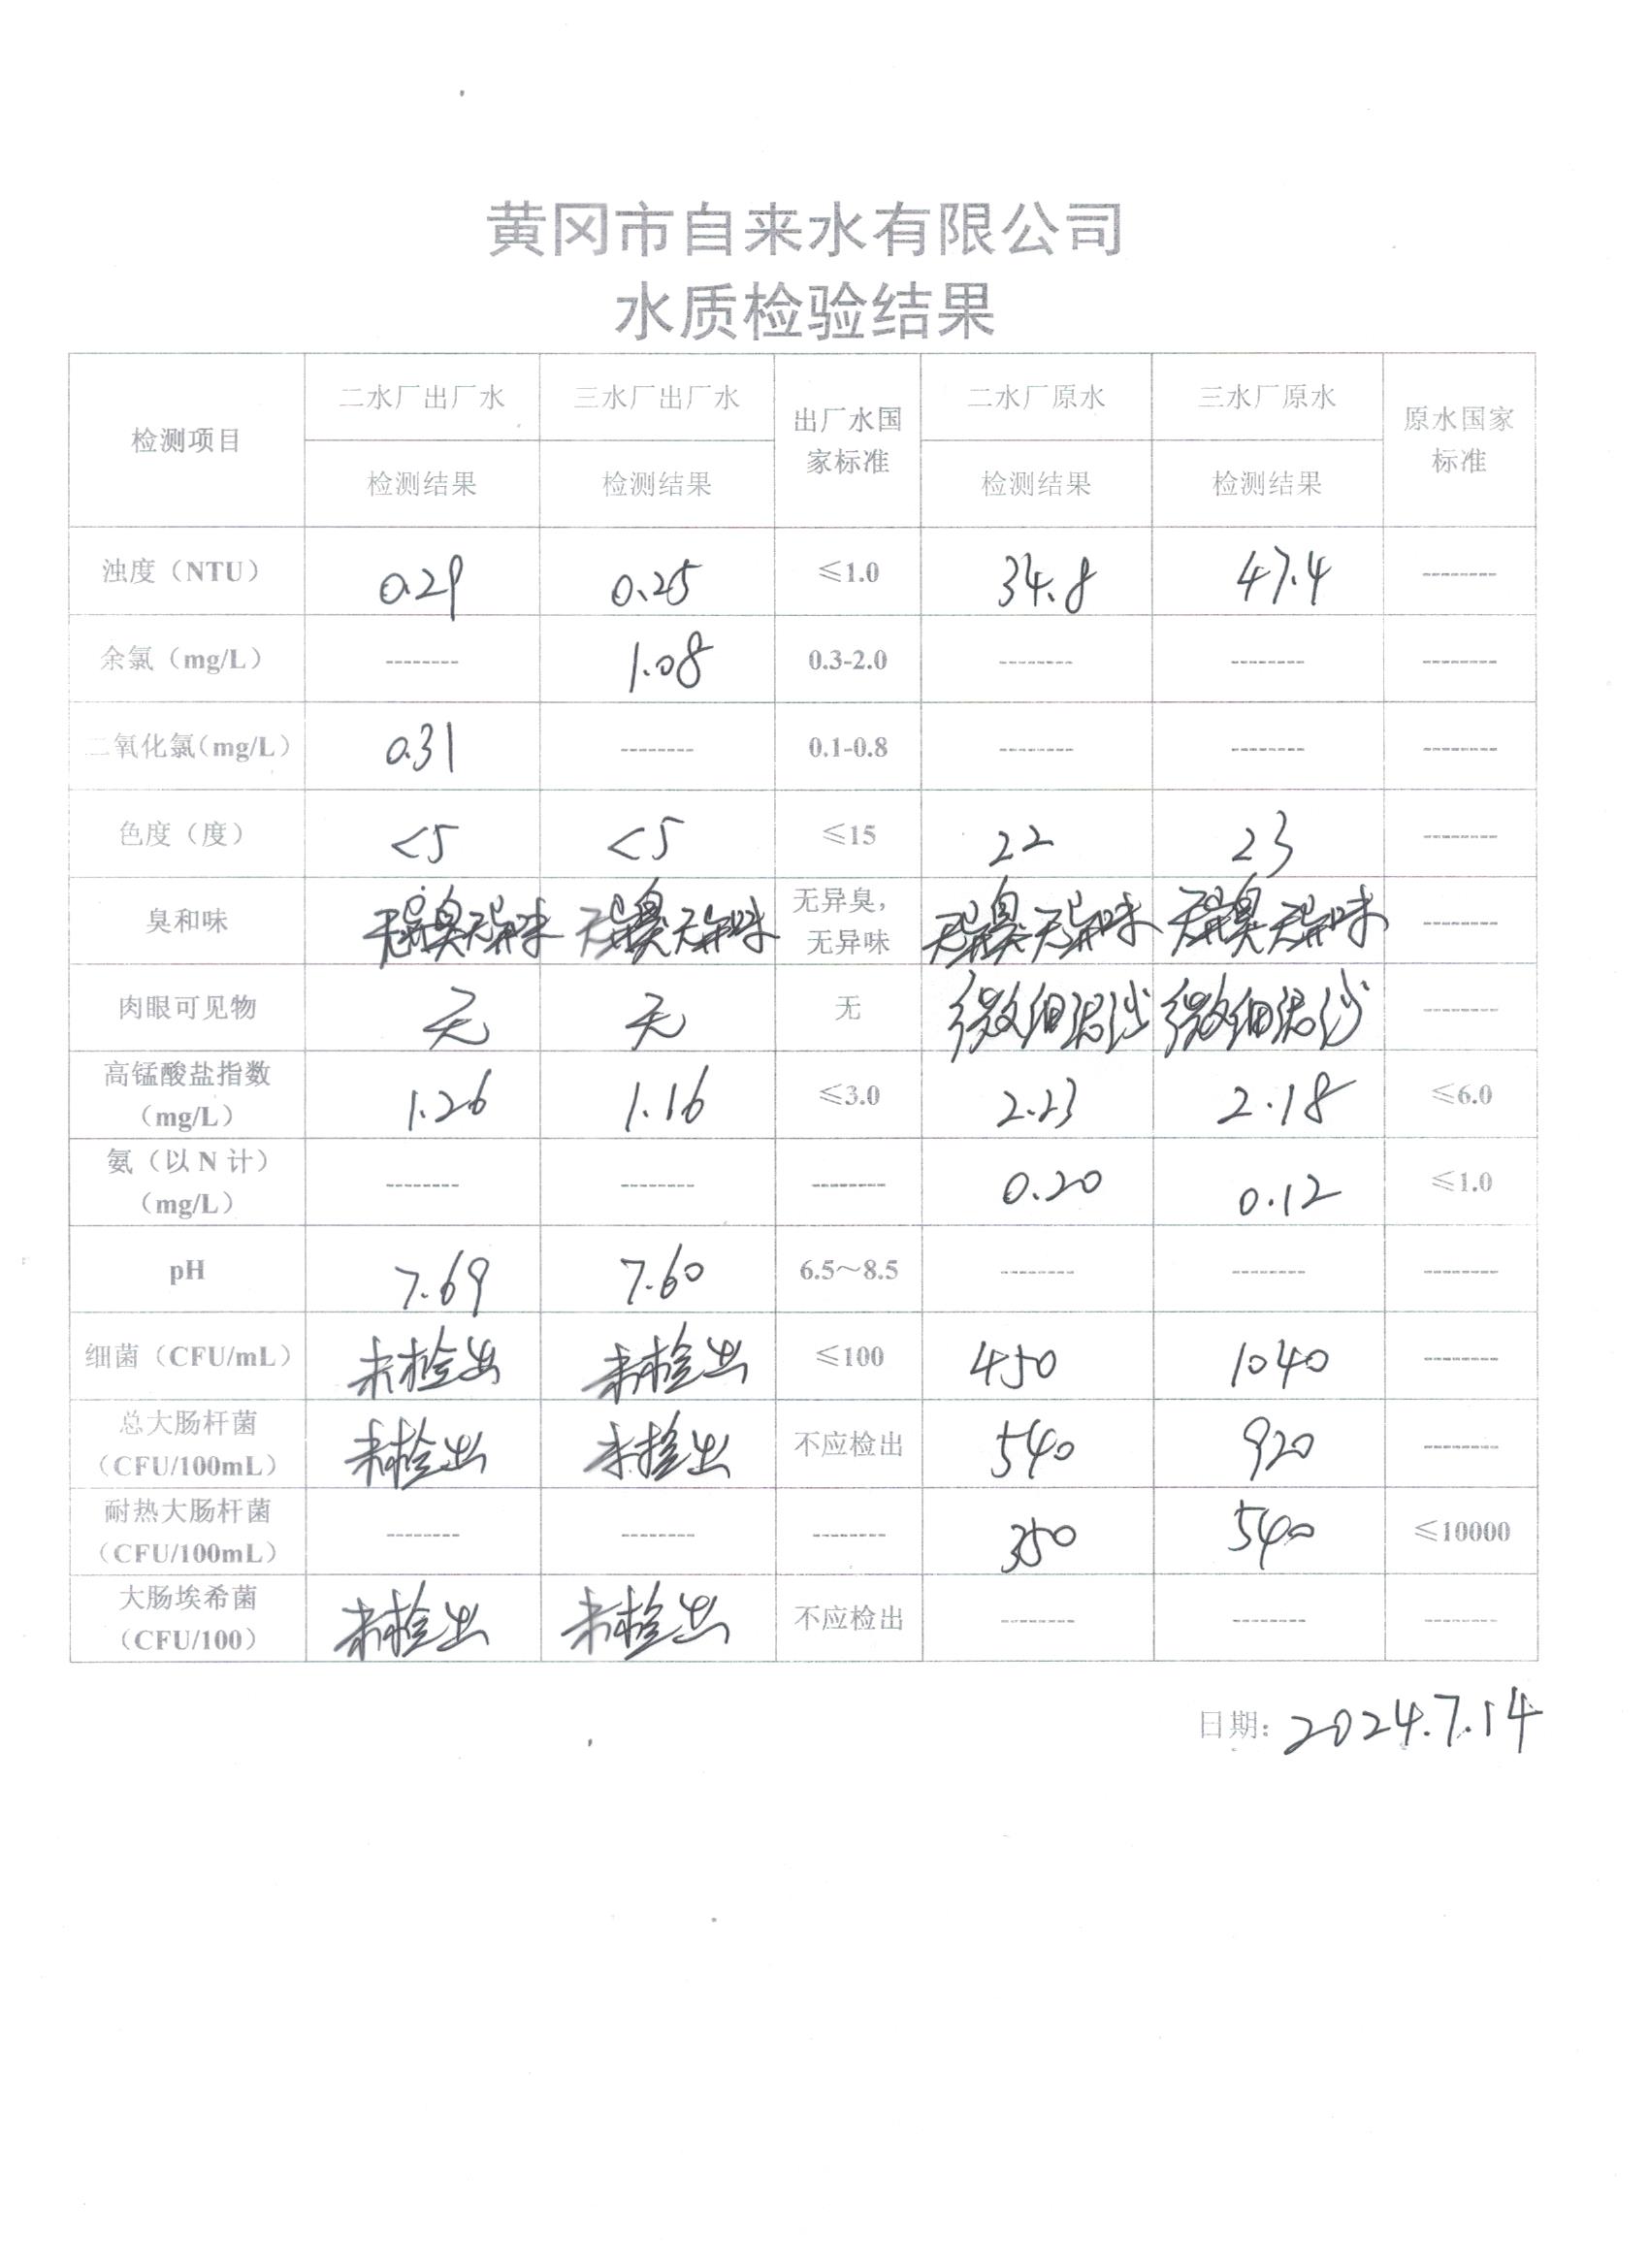 黄冈市自来水有限公司
水质检验结果
检测项目 二水厂出厂水 三水厂出厂水 出厂水国家标准 二水厂原水 三水厂原水 原水国家标准
检测结果 检测结果 检测结果 检测结果
浊度（NTU） 0.29 0.25 ≤1.0 34.8 47.4 --------
余氯（mg/L） -------- 1.08 0.3-2.0 -------- -------- --------
二氧化氯(mg/L) 0.31 -------- 0.1-0.8 -------- -------- --------
色度（度） <5 <5 ≤15 22 23 --------
臭和味 无异臭无异味 无异臭无异味 无异臭，无异味 无异臭无异味 无异臭无异味 --------
肉眼可见物 无 无 无 微细泥沙 微细泥沙 --------
高锰酸盐指数（mg/L） 1.26 1.16 ≤3.0 2.23 2.18 ≤6.0
氨（以N计）（mg/L） -------- -------- -------- 0.20 0.12 ≤1.0
pH 7.69 7.60 6.5～8.5 -------- -------- --------
细菌（CFU/mL） 未检出 未检出 ≤100 450 1040 --------
总大肠杆菌（CFU/100mL） 未检出 未检出 不应检出 540 920 --------
耐热大肠杆菌（CFU/100mL） -------- -------- -------- 350 540 ≤10000
大肠埃希菌（CFU/100） 未检出 未检出 不应检出 -------- -------- --------
日期: 2024.7.14